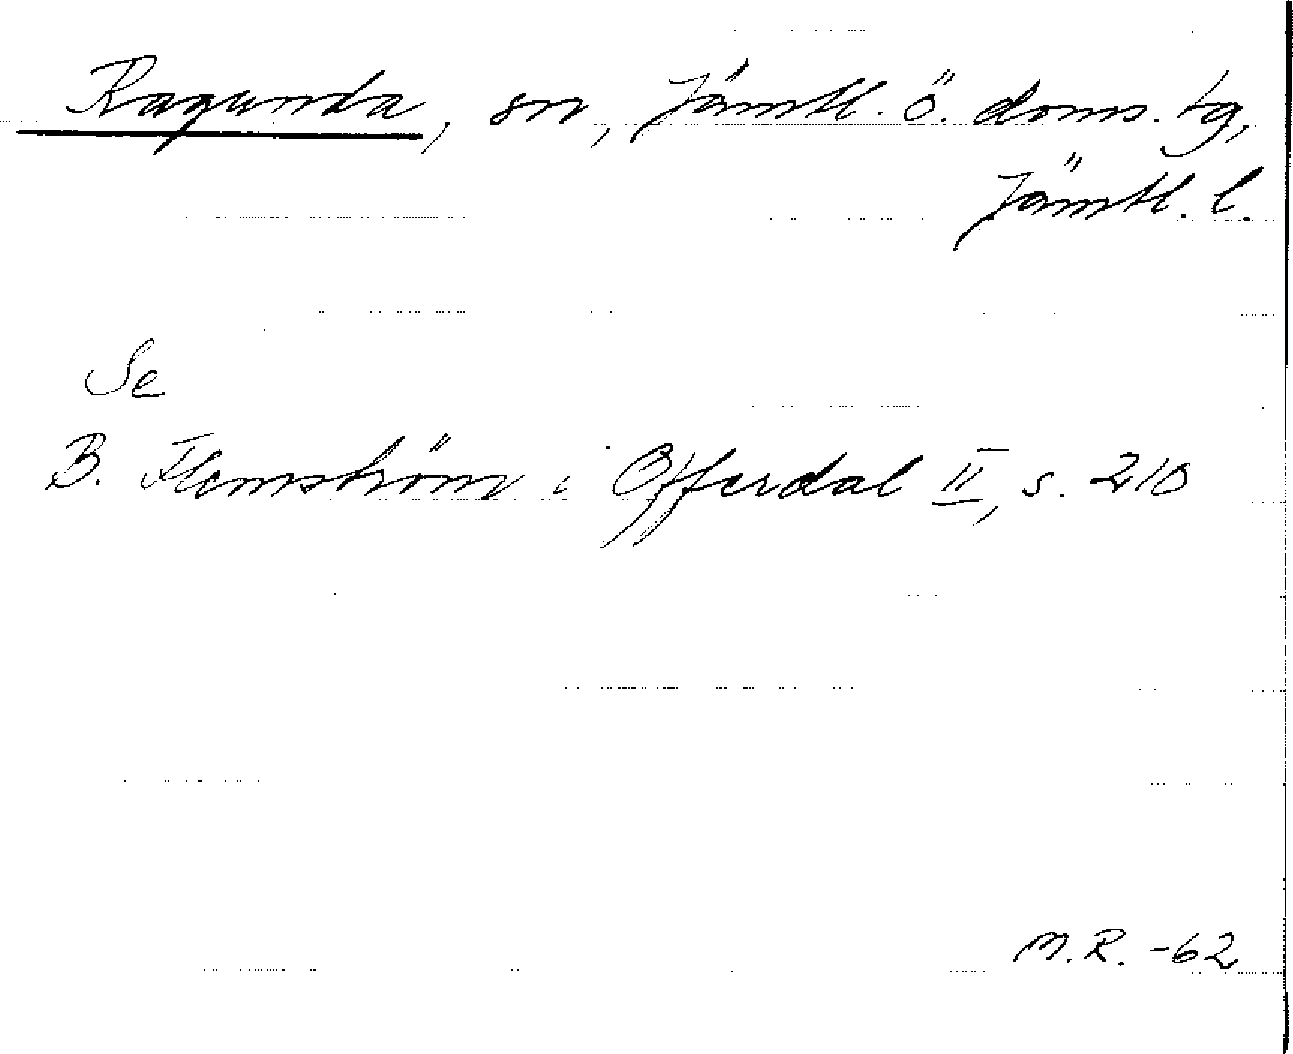 Ragunda, sn, Jämtl. ö. doms. tg,
Jämtl. l.
Se
B. Flemström i Offerdal II, s. 210
M.R. -62